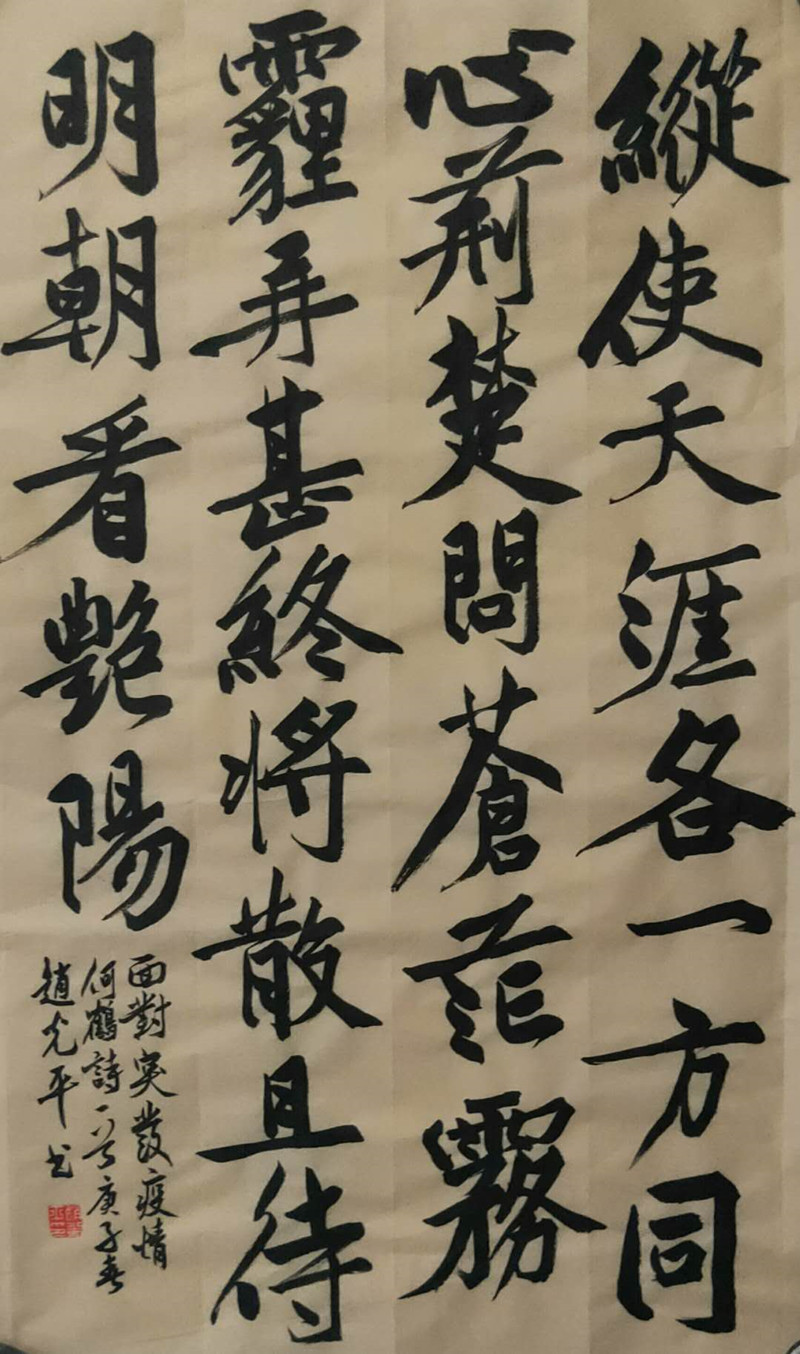 縱使天涯各一方同
心荊楚問蒼茫霧
霾弄甚終將散且待
明朝看艷陽
面對突發疫情
何鶴詩一首庚子春
趙光平书